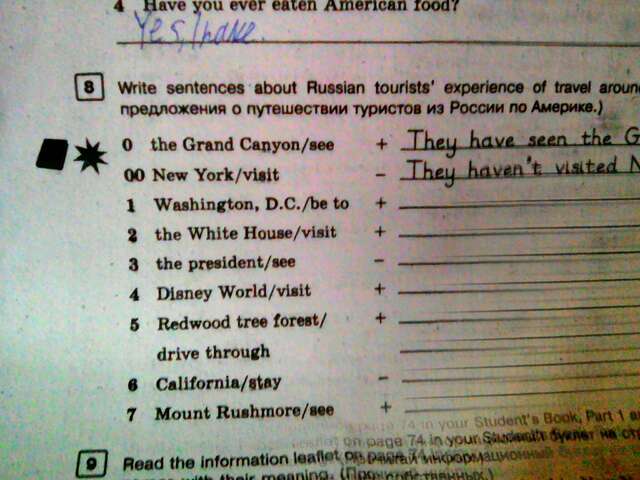 4 Have you ever eaten American food?
Yes, I have.
8 Write sentences about Russian tourists' experience of travel aroun
предложения о путешествии туристов из России по Америке.)
0 the Grand Canyon/see + They have seen the G
00 New York/visit – They haven't visited N
1 Washington, D.C./be to +
2 the White House/visit +
3 the president/see –
4 Disney World/visit +
5 Redwood tree forest/ +
drive through
6 California/stay –
7 Mount Rushmore/see +
page 74 in your Student's Book, Part 1 a
on page 74 in your Student's буклет на стр
9 Read the information leaflet on page информационный
with their meaning.